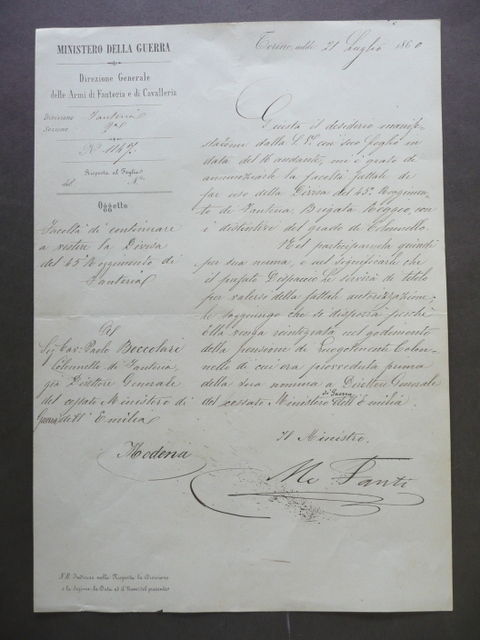 MINISTERO DELLA GUERRA
Direzione Generale
delle Armi di Fanteria e di Cavalleria
Divisione Fanteria
Sezione
No 1147.
Risposta al Foglio
del No
Oggetto
Facoltà di continuare
a vestire la Divisa
del 45o Reggimento di
Fanteria
Al
Sig. Cav. Paolo Boccolari
Colonnello di Fanteria,
già Direttore Generale
del cessato Ministero di
Guerra dell'Emilia
Modena
N.B. Indicare nella Risposta la Divisione
e la Sezione, la Data ed il Numo del presente
Torino, addì 21 Luglio 1860
Giusta il desiderio manife-
stazione dalla S.V. con suo foglio in
data del 16 andante, mi è grato di
annunziarle la facoltà fattale di
far uso della Divisa del 45o Reggimen-
to di Fanteria Brigata Reggio, con
i distintivi del grado di Colonnello.
Nel partecipare quindi
per sua norma, e nel significarle che
il presente Dispaccio Le servirà di titolo
per valersi della fattale autorizzazione,
Le soggiungo che si disporrà perchè
Ella venga reintegrata nel godimento
della pensione di Luogotenente Colon-
nello di cui era provveduta prima
della sua nomina a Direttore Generale
del cessato Ministero di Guerra dell'Emilia.
Il Ministro.
M. Fanti